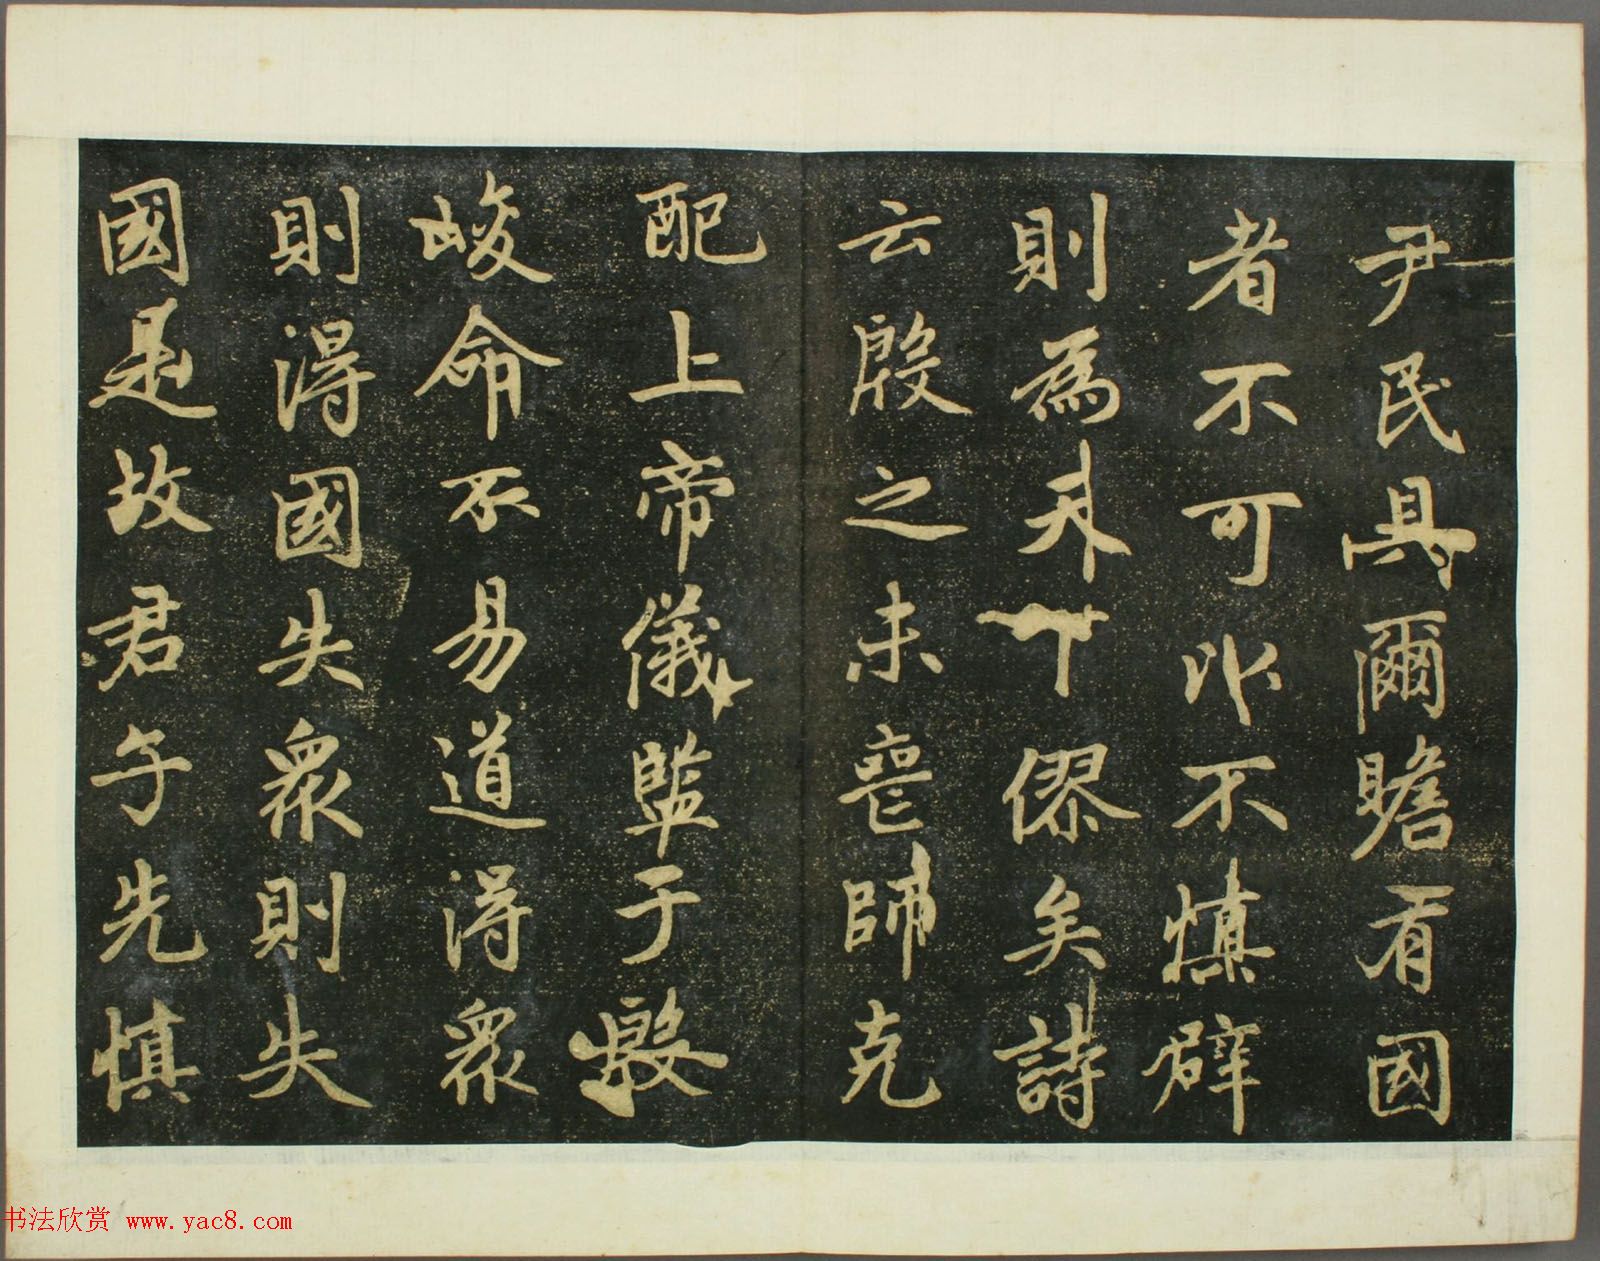 尹民具爾瞻有國
者不可以不慎辟
則為天下僇矣詩
云殷之未喪師克
配上帝儀監于殷
峻命不易道得眾
則得國失眾則失
國是故君子先慎
书法欣赏 www.yac8.com